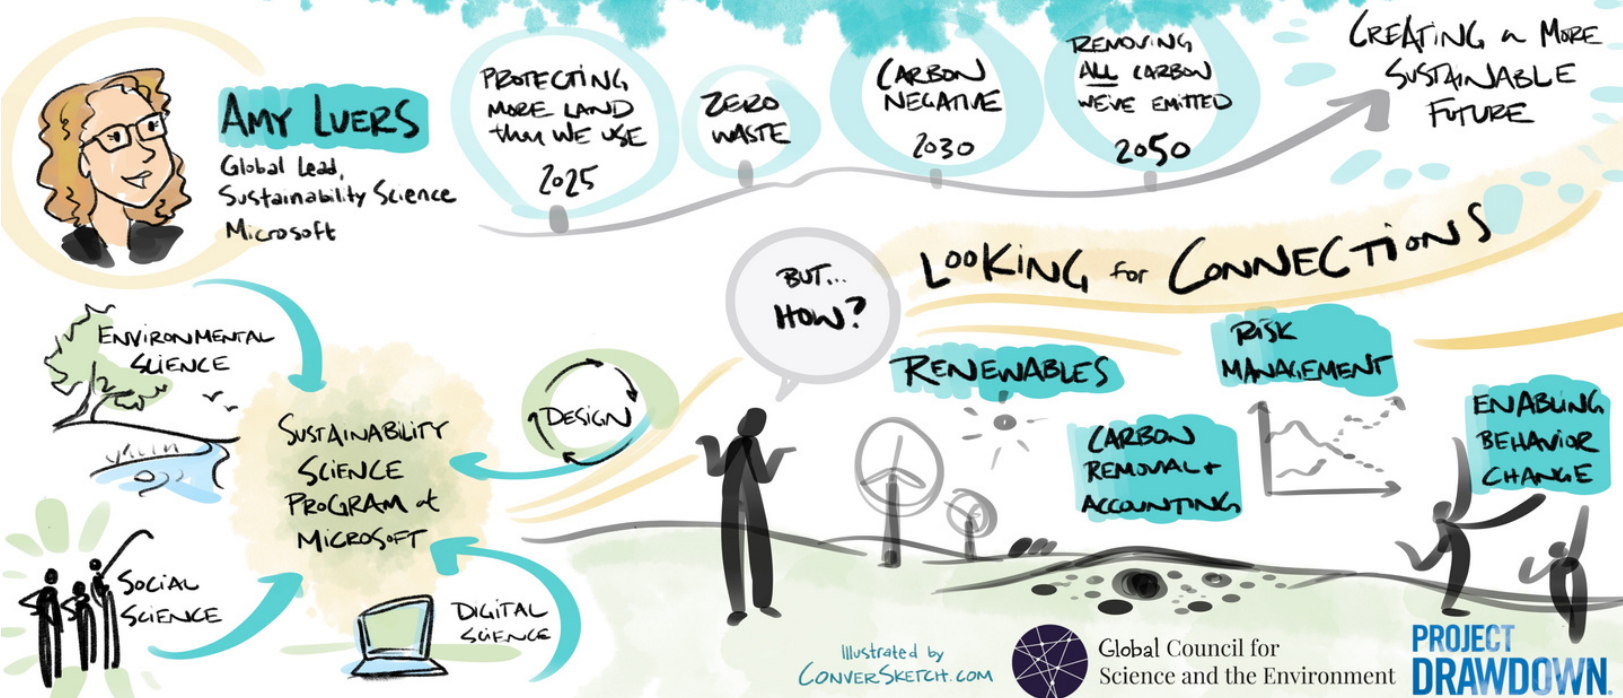 AMY LUERS
Global Lead,
Sustainability Science
Microsoft
PROTECTING
MORE LAND
than WE USE
2025
ZERO
WASTE
CARBON
NEGATIVE
2030
REMOVING
ALL CARBON
WE'VE EMITTED
2050
CREATING a MORE
SUSTAINABLE
FUTURE
BUT...
HOW?
LOOKING for CONNECTIONS
ENVIRONMENTAL
SCIENCE
SUSTAINABILITY
SCIENCE
PROGRAM at
MICROSOFT
DESIGN
SOCIAL
SCIENCE
DIGITAL
SCIENCE
RENEWABLES
RISK
MANAGEMENT
CARBON
REMOVAL +
ACCOUNTING
ENABLING
BEHAVIOR
CHANGE
Illustrated by
CONVERSKETCH.COM
Global Council for
Science and the Environment
PROJECT
DRAWDOWN